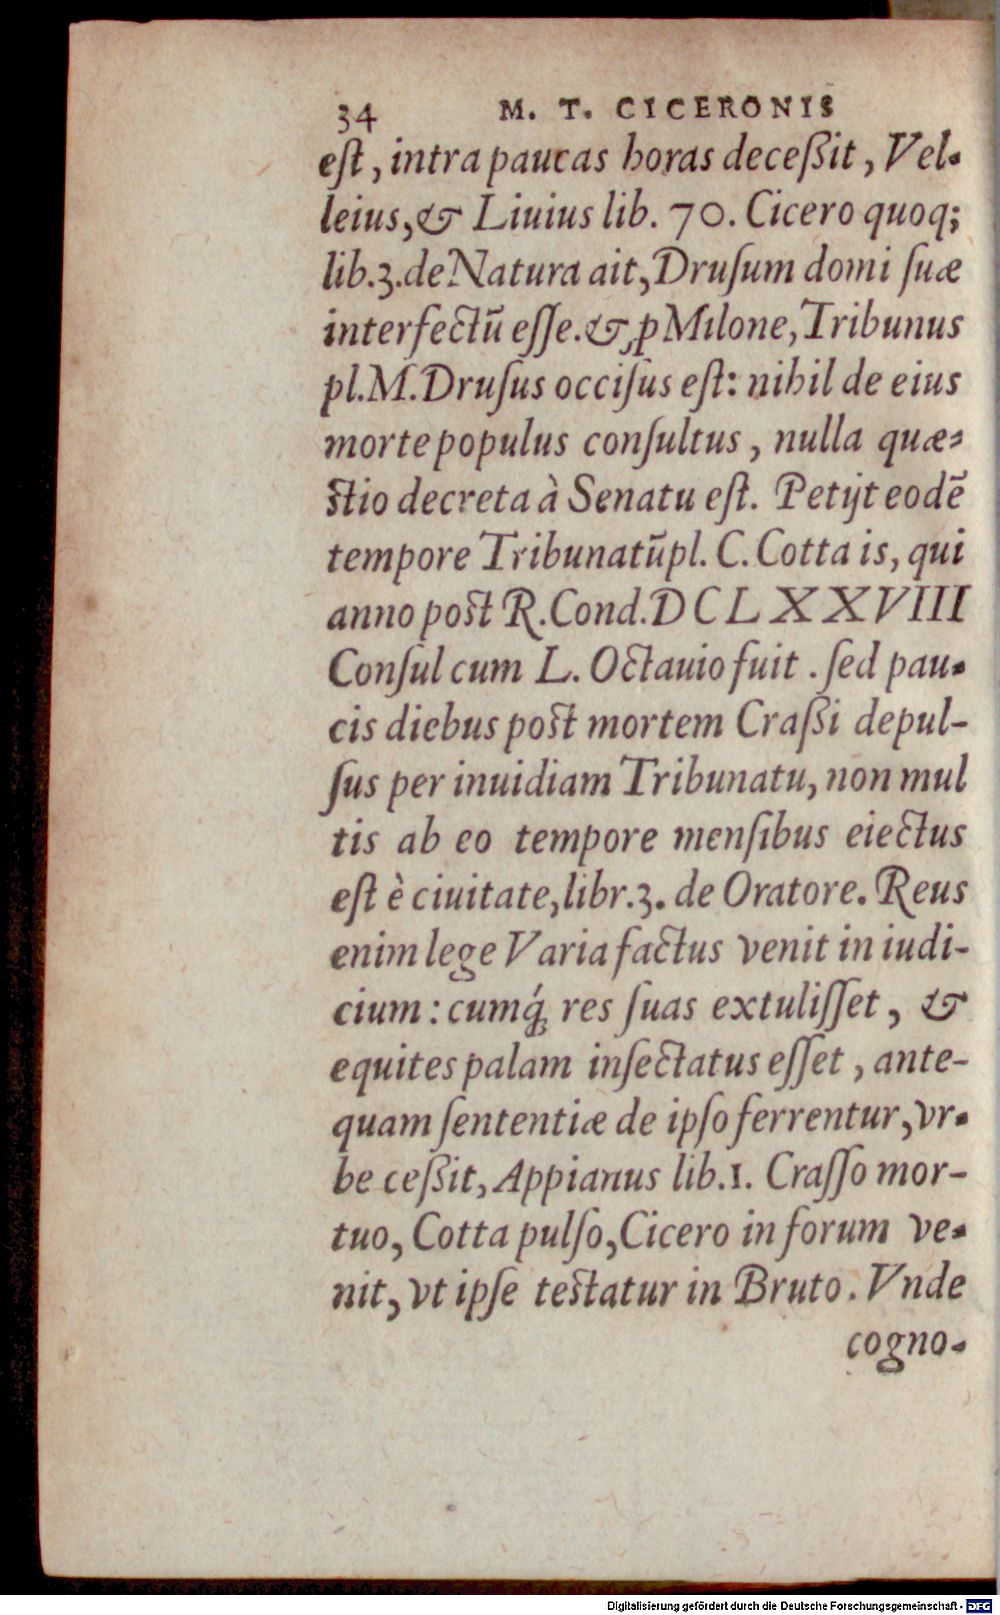 34 M. T. CICERONIS
eſt, intra paucas horas deceßit, Vel-
leius, & Liuius lib. 70. Cicero quoq;
lib.3.de Natura ait, Druſum domi ſuæ
interfectū eſſe. & ꝓ Milone, Tribunus
pl. M. Druſus occiſus eſt: nihil de eius
morte populus conſultus, nulla quæ-
ſtio decreta à Senatu eſt. Petijt eodē
tempore Tribunatū pl. C. Cotta is, qui
anno poſt R. Cond. DCLXXVIII
Conſul cum L. Octauio fuit. ſed pau-
cis diebus poſt mortem Craßi depul-
ſus per inuidiam Tribunatu, non mul
tis ab eo tempore menſibus eiectus
eſt è ciuitate, libr.3. de Oratore. Reus
enim lege Varia factus venit in iudi-
cium: cumq́; res ſuas extuliſſet, &
equites palam inſectatus eſſet, ante-
quam ſententiæ de ipſo ferrentur, vr-
be ceßit, Appianus lib.1. Craſſo mor-
tuo, Cotta pulſo, Cicero in forum ve-
nit, vt ipſe teſtatur in Bruto. Vnde
cogno-
Digitalisierung gefördert durch die Deutsche Forschungsgemeinschaft - DFG